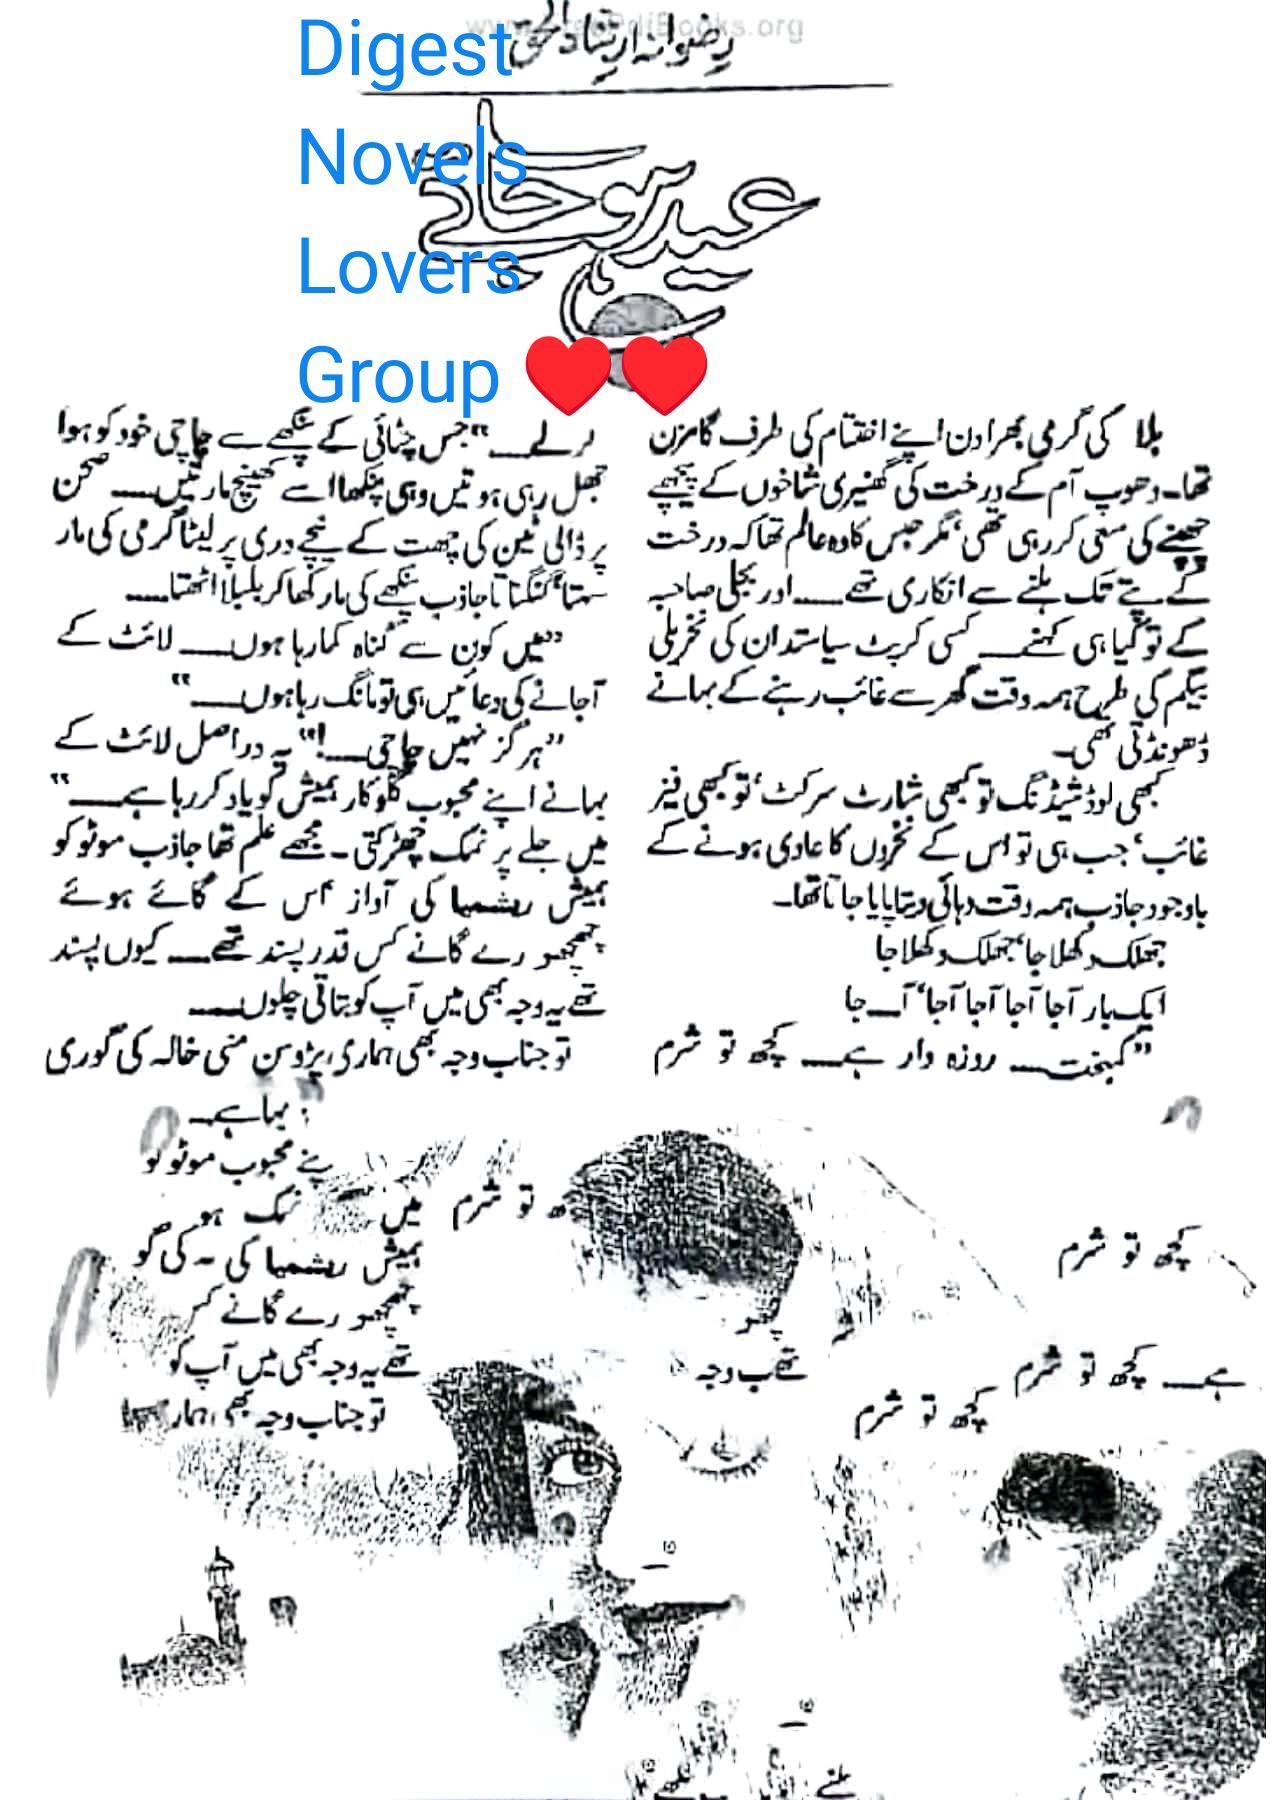 www.FreePdfBooks.org
رضوانہ ارشاد الحق
Digest
Novels
Lovers
Group ❤❤
عید ہو جائے
بلا کی گرمی بھرا دن اپنے اختتام کی طرف گامزن
تھا۔ دھوپ آم کے درخت کی گھنیری شاخوں کے پیچھے
چھپنے کی سعی کر رہی تھی، مگر حبس کا وہ عالم تھا کہ درخت
کے پتے تک ہلنے سے انکاری تھے ـــــ اور بجلی صاحبہ
کے تو کیا ہی کہنے ـــــ کسی کرپٹ سیاستدان کی نخریلی
بیگم کی طرح ہمہ وقت گھر سے غائب رہنے کے بہانے
ڈھونڈتی تھی۔
کبھی لوڈشیڈنگ تو کبھی شارٹ سرکٹ، تو کبھی فیز
غائب، جب ہی تو اس کے نخروں کا عادی ہونے کے
باوجود جاذب ہمہ وقت دہائی دیتا پایا جاتا تھا۔
جھلک دکھلا جا، جھلک دکھلا جا
ایک بار آجا آجا آجا آجا، آـــ جا
”کمبخت ـــــ روزہ دار ہے ـــــ کچھ تو شرم
کرلے ـــــ“ جس چٹائی کے پنکھے سے چاچی خود کو ہوا
جھل رہی ہوتیں وہی پنکھا اسے کھینچ مارتیں ـــــ صحن
پر ڈالی ٹین کی چھت کے نیچے دری پر لیٹا گرمی کی مار
سہتا، گنگناتا جاذب پنکھے کی مار کھا کر بلبلا اٹھتا ـــــ
”میں کون سے گناہ کما رہا ہوں ـــــ لائٹ کے
آجانے کی دعائیں ہی تو مانگ رہا ہوں ـــــ“
”ہرگز نہیں چاچی ـــــ!“ یہ دراصل لائٹ کے
بہانے اپنے محبوب گلوکار ہمیش کو یاد کر رہا ہے ـــــ“
میں جلے پر نمک چھڑکتی۔ مجھے علم تھا جاذب موٹو کو
ہمیش ریشمیا کی آواز اس کے گائے ہوئے
چھچھورے گانے کس قدر پسند تھے ـــــ کیوں پسند
تھے یہ وجہ بھی میں آپ کو بتاتی چلوں ـــــ
تو جناب وجہ بھی ہماری پڑوسن منی خالہ کی گوری
بہا ہے ـــ
پنے محبوب موٹو کو
میں نمک ہو
ہمیش ریشمیا کی ۔ کی گو
چھچھورے گانے کس
تھے یہ وجہ بھی میں آپ کو
تو جناب وجہ بھی ہمار
تو شرم
کچھ تو شرم
ہے ـــــ کچھ تو شرم
کچھ تو شرم
وجہ